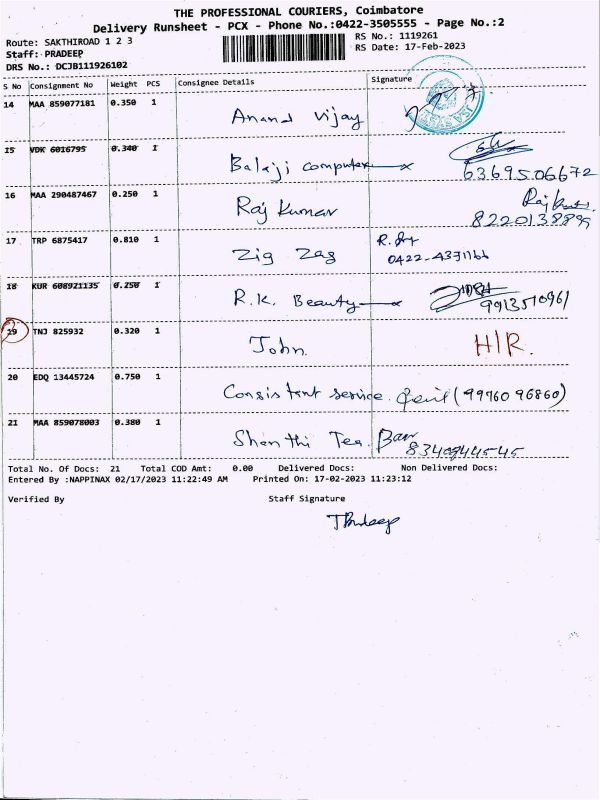 THE PROFESSIONAL COURIERS, Coimbatore
Delivery Runsheet - PCX - Phone No.:0422-3505555 - Page No.:2
Route: SAKTHIROAD 1 2 3 RS No.: 1119261
Staff: PRADEEP RS Date: 17-Feb-2023
DRS No.: DCJB111926102
S No Consignment No Weight PCS Consignee Details Signature
14 MAA 859077181 0.350 1 Anand Vijay
15 VDK 6016795 0.340 1 Balaji computer
6369506672
16 MAA 290487467 0.250 1 Raj Kumar Rajkumar
8220138899
17 TRP 6875417 0.810 1 Zig Zag
0422-4331166
18 KUR 608921135 0.250 1 R.K. Beauty
9913510961
19 TNJ 825932 0.320 1 John. H/R.
20 EDQ 13445724 0.750 1 Consistent service. (99760 96860)
21 MAA 859078003 0.380 1 Shanthi Tea.
Total No. Of Docs: 21 Total COD Amt: 0.00 Delivered Docs: Non Delivered Docs:
Entered By :NAPPINAX 02/17/2023 11:22:49 AM Printed On: 17-02-2023 11:23:12
Verified By Staff Signature